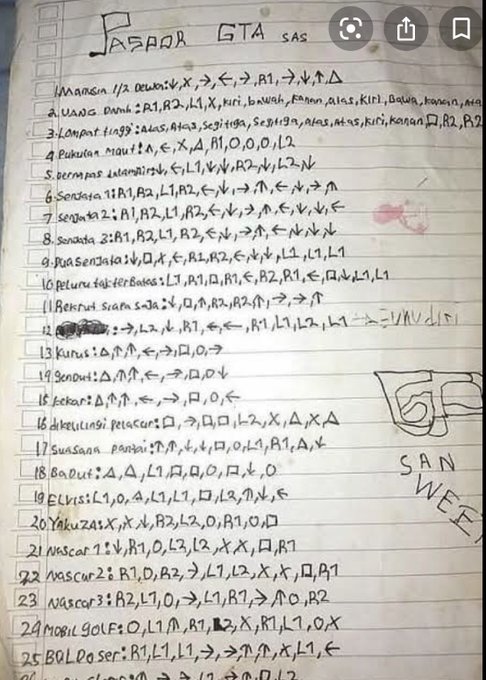 PASPOR GTA SAS
1. Manusia 1/2 Dewa: ↓, X, →, ←, →, R1, →, ↓, ↑, △
2. UANG Darah: R1, R2, L1, X, kiri, bawah, kanan, atas, KIRI, Bawa, kanan, Ata
3. Lompat tinggi: Atas, Atas, Segitiga, Segitiga, atas, Atas, kiri, kanan, □, R2, R2
4 Pukulan maut: ^, ←, X, △, R1, O, O, O, L2
5. bernapas dalam air: ↓, ←, L1, ↓, ↓, R2, ↓, L2, ↓
6. Senjata 1: R1, R2, L1, R2, ←, ↓, →, ↑, ←, ↓, →, ↑
7. Senjata 2: R1, R2, L1, R2, ←, ↓, →, ↑, ←, ↓, ↓, ←
8. Senjata 3: R1, R2, L1, R2, ←, ↓, →, ↑, ←, ↓, ↓, ↓
9. Dua Senjata: ↓, □, X, ←, R1, R2, ←, ↓, ↓, L1, L1, L1
10 Peluru tak terBatas: L1, R1, □, R1, ←, R2, R1, ←, □, ↓, L1, L1
11 Rekrut siapa saja: ↓, □, ↑, R2, R2, ↑, →, →, ↑
12 : →, L2, ↓, R1, ←, ←, R1, L1, L2, L1
13 Kurus: △, ↑, ↑, ←, →, □, O, →
14 Gendut: △, ↑, ↑, ←, →, □, O, ↓
15 kekar: △, ↑, ↑, ←, →, □, O, ←
16 dikelilingi pelacur: □, →, □, □, L2, X, △, X, △
17 Suasana pantai: ↑, ↑, ↓, ↓, □, O, L1, R1, △, ↓
18 Badut: △, △, L1, □, □, O, □, ↓, O
19 ELVIS: L1, O, △, L1, L1, □, L2, ↑, ↓, ←
20 YAKUZA: X, X, ↓, R2, L2, O, R1, O, □
21 Nascar 1: ↓, R1, O, L2, L2, X, X, □, R1
22 Nascar 2: R1, O, R2, →, L1, L2, X, X, □, R1
23 Nascar 3: R2, L1, O, →, L1, R1, →, ↑, O, R2
24 MOBIL GOLF: O, L1, ↑, R1, L2, X, R1, L1, O, X
25 BOLDOser: R1, L1, L1, →, →, ↑, ↑, X, L1, ←
SAN